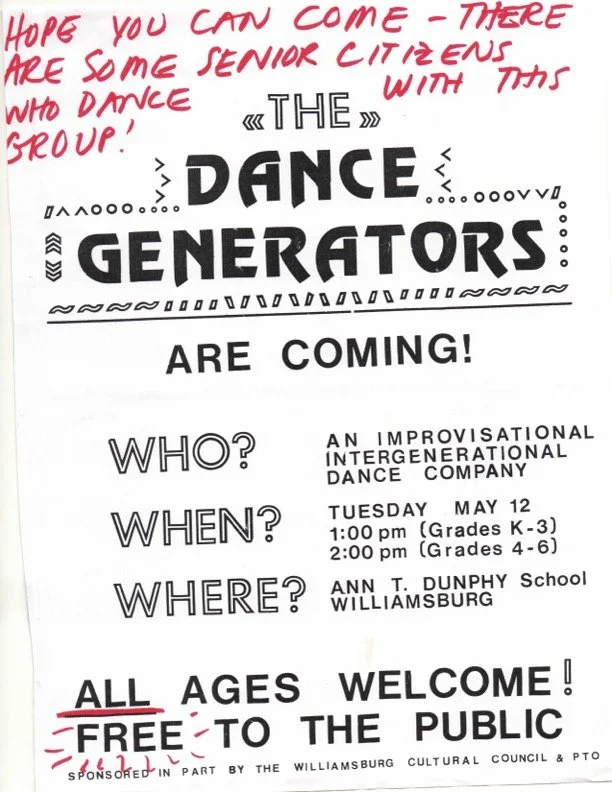 HOPE YOU CAN COME – THERE
ARE SOME SENIOR CITIZENS
WHO DANCE WITH THIS
GROUP!
«THE»
DANCE
GENERATORS
ARE COMING!
WHO? AN IMPROVISATIONAL
INTERGENERATIONAL
DANCE COMPANY
WHEN? TUESDAY MAY 12
1:00 pm (Grades K-3)
2:00 pm (Grades 4-6)
WHERE? ANN T. DUNPHY School
WILLIAMSBURG
ALL AGES WELCOME!
FREE TO THE PUBLIC
SPONSORED IN PART BY THE WILLIAMSBURG CULTURAL COUNCIL & PTO